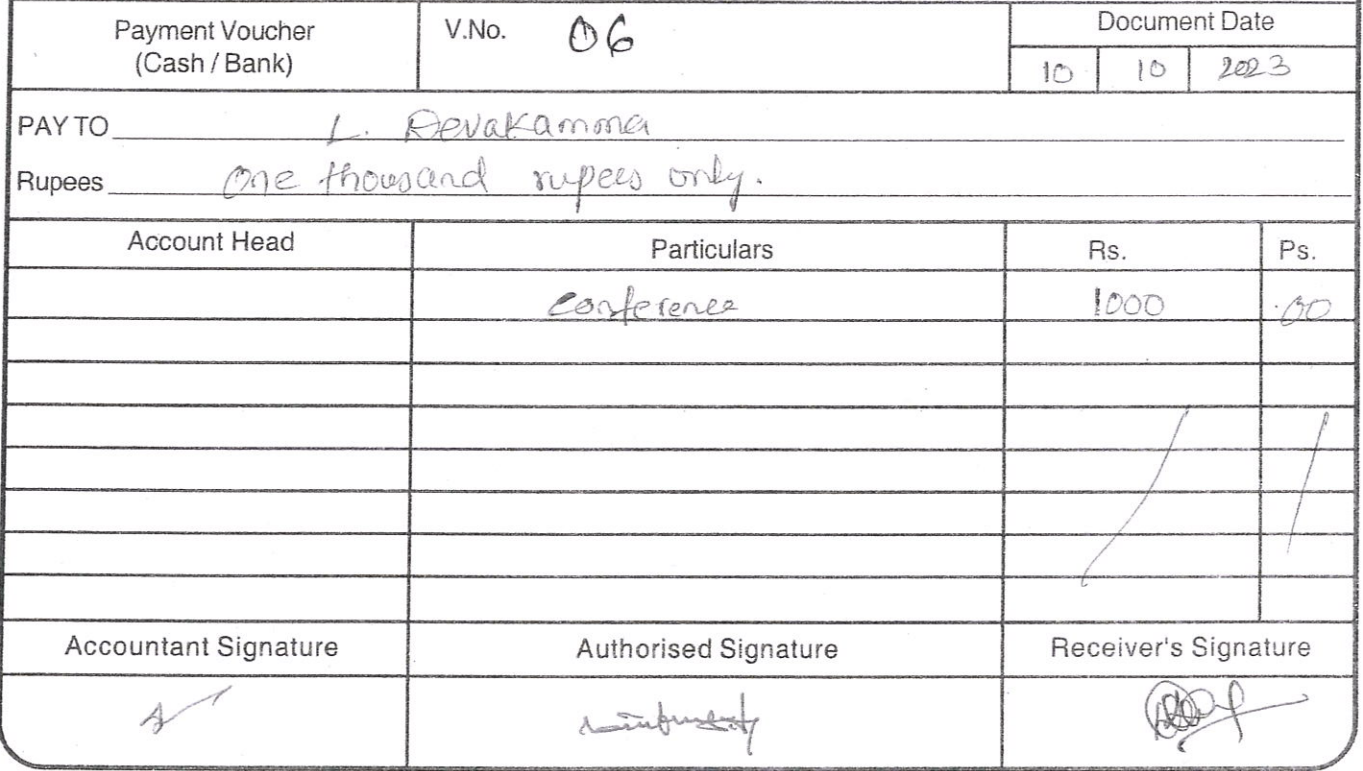 Payment Voucher
(Cash / Bank)
V.No. 06
Document Date
10 10 2023
PAY TO L. Devakamma
Rupees One thousand rupees only.
Account Head Particulars Rs. Ps.
Conference 1000 .00
Accountant Signature Authorised Signature Receiver's Signature